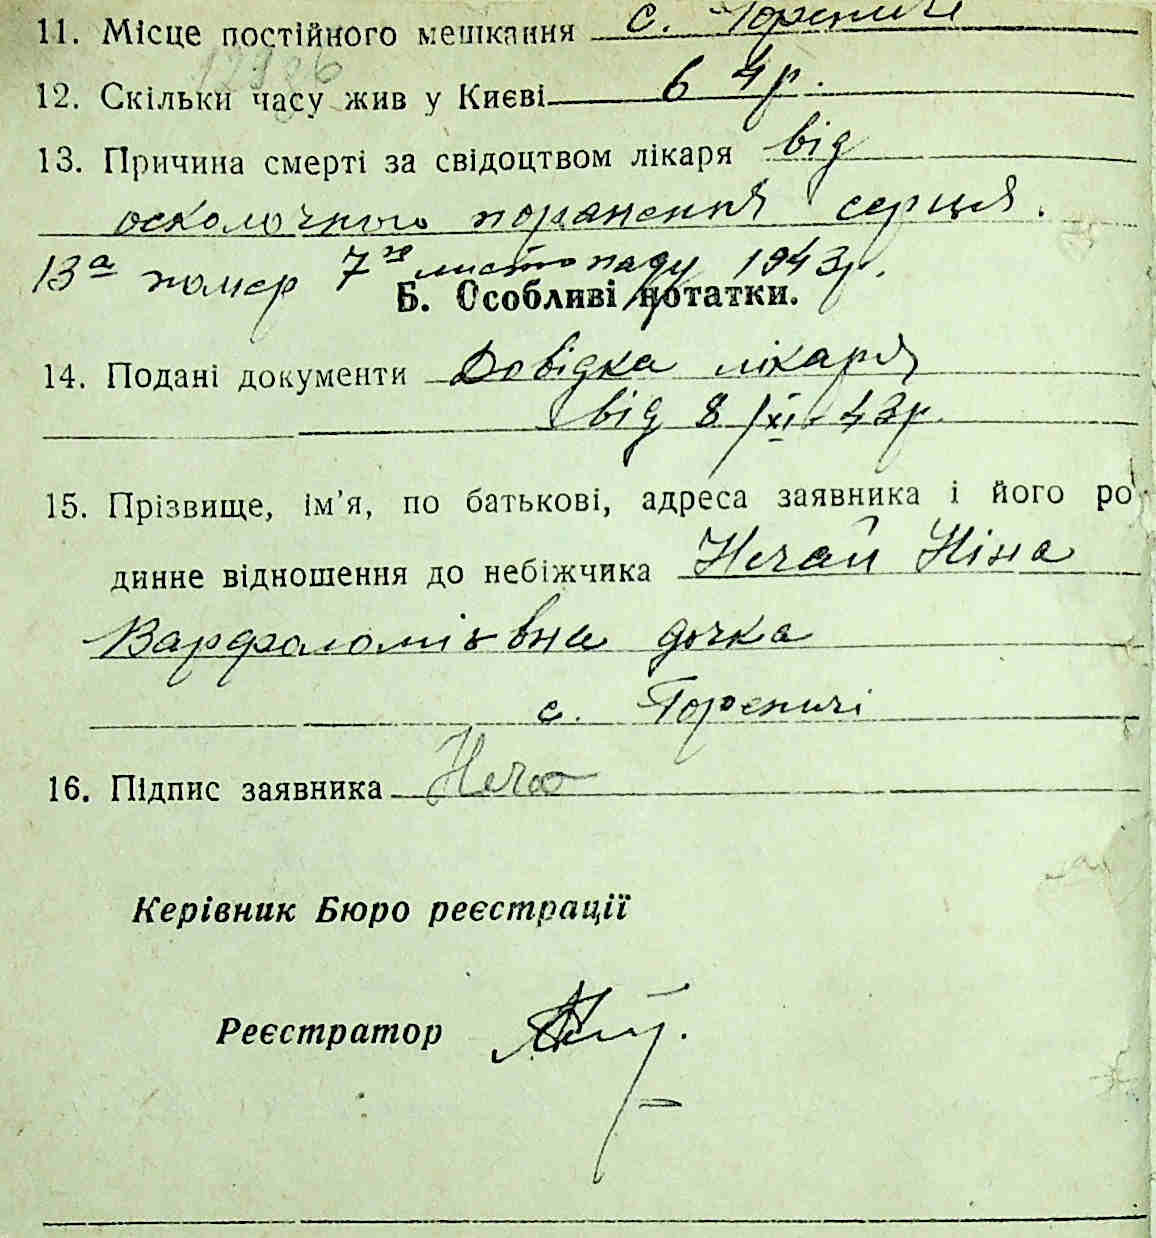 11. Місце постійного мешкання с. Горєничі
12. Скільки часу жив у Києві 64р.
13. Причина смерті за свідоцтвом лікаря від
осколочного поранення серця.
13а помер 7го листопаду 1943р.
Б. Особливі нотатки.
14. Подані документи Довідка лікаря
від 8/XI-43р.
15. Прізвище, ім'я, по батькові, адреса заявника і його ро
динне відношення до небіжчика Нечай Ніна
Варфоломієвна дочка
с. Горєничі
16. Підпис заявника
Керівник Бюро реєстрації
Реєстратор